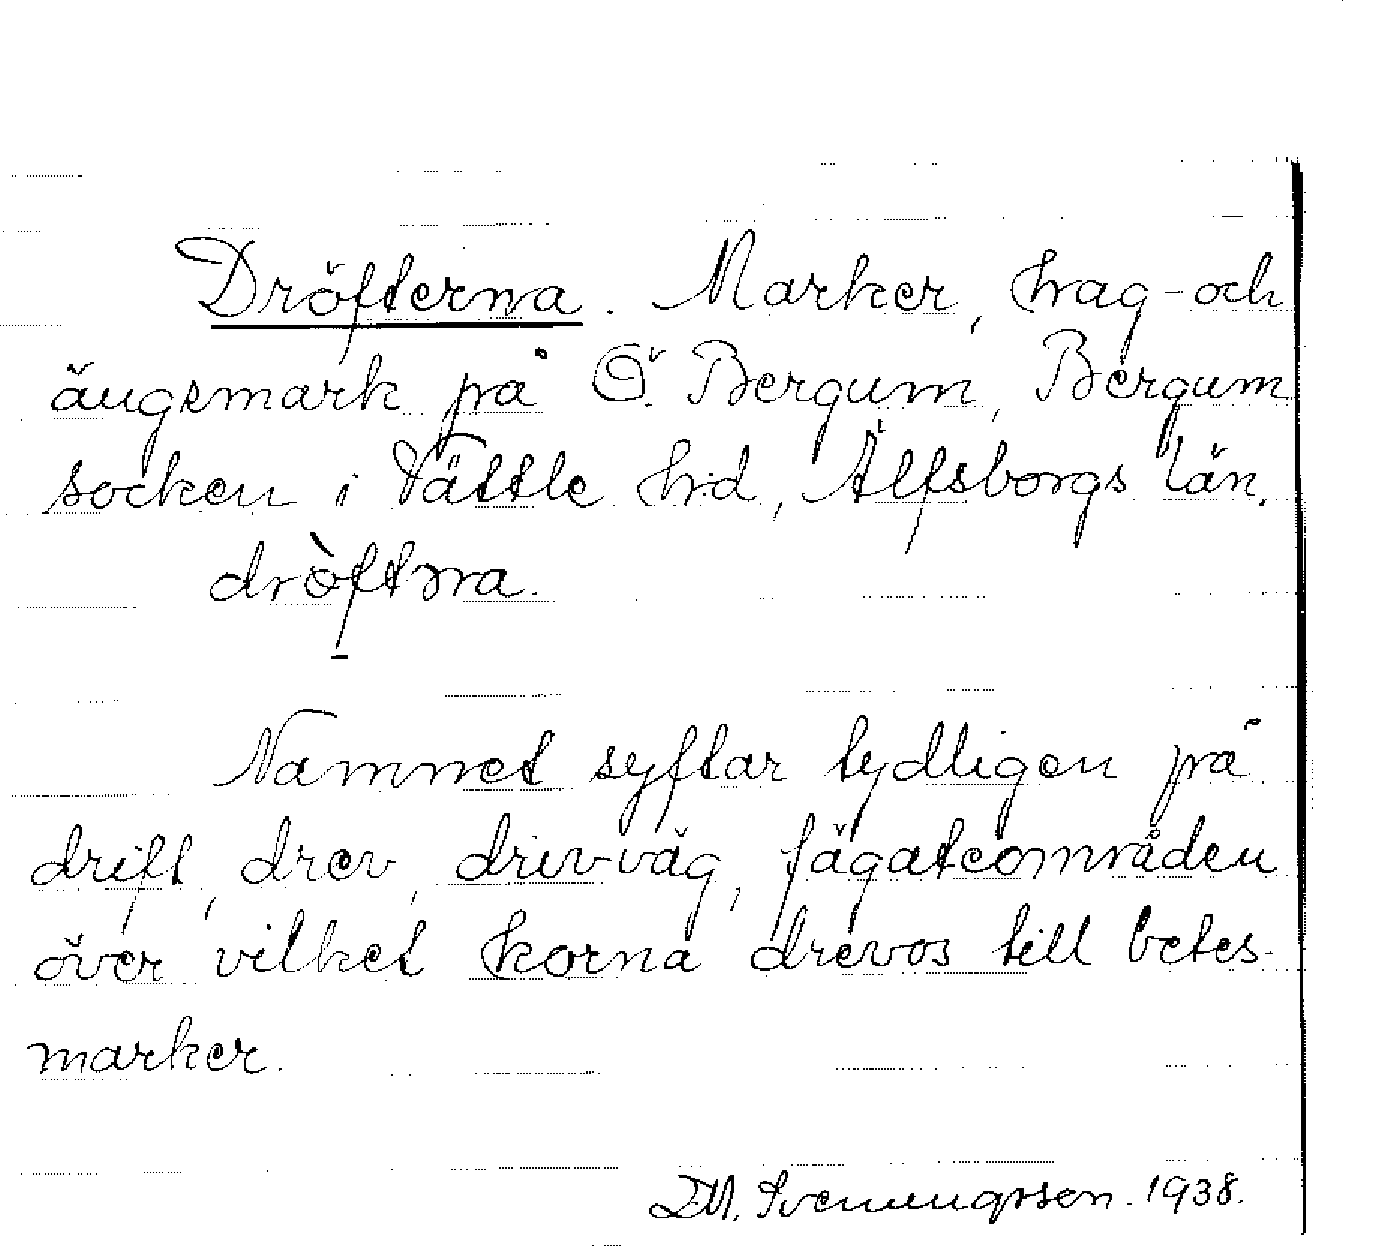 Dröfterna. Marker, hag- och
ängsmark på Ö. Bergum, Bergum
socken i Vättle hrd, Älfsborgs län.
dròftna.
Namnet syftar tydligen på
drift, drev, driv-väg, fägateområden
över vilket korna drevos till betes-
marker.
D.M. Svenungsson. 1938.